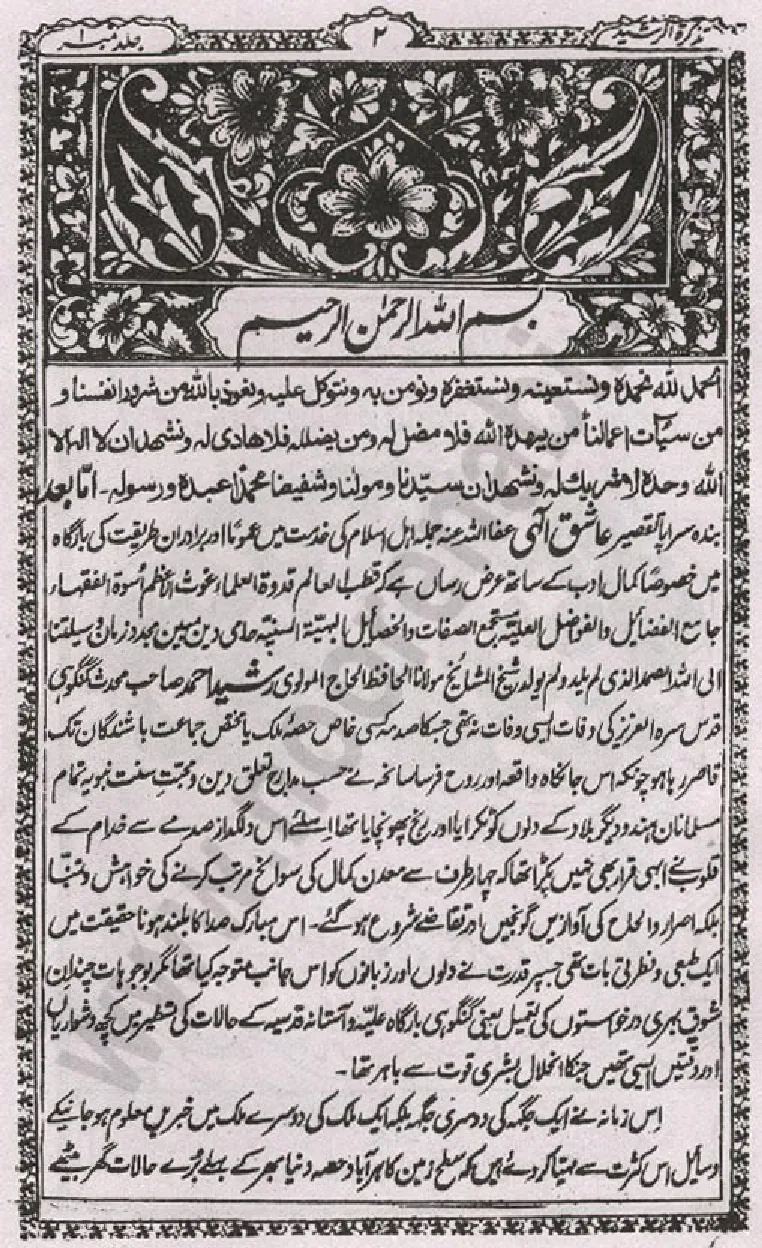 تذکرۃ الرشید
۲
جلد نمبر ۱
بسم اللہ الرحمٰن الرحیم
الحمد للہ نحمدہ ونستعینہ ونستغفرہ ونومن بہ ونتوکل علیہ ونعوذ باللہ من شرور انفسنا و
من سیّاٰت اعمالنا من یھدہ اللہ فلا مضل لہ ومن یضللہ فلا ھادی لہ ونشھد ان لا الہ الا
اللہ وحدہ لا شریک لہ ونشھد ان سیّدنا ومولٰنا وشفیعنا محمدًا عبدہ ورسولہ۔ امّا بعد
بندہ سراپا تقصیر عاشق الٰہی عفا اللہ عنہ جملہ اہل اسلام کی خدمت میں عمومًا اور برادران طریقت کی بارگاہ
میں خصوصًا کمال ادب کے ساتھ عرض رساں ہے کہ قطب العالم قدوۃ العلماء غوث الاعظم اسوۃ الفقہاء
جامع الفضائل والفواضل العلیۃ مستجمع الصفات والخصائل البہیۃ السنیۃ حامی دین مبین مجدد زمان وسیلتنا
الی اللہ الصمد الذی لم یلد ولم یولد شیخ المشائخ مولانا الحافظ الحاج المولوی رشید احمد صاحب محدث گنگوہی
قدس سرہ العزیز کی وفات ایسی وفات نہ تھی جسکا صدمہ کسی خاص حصۂ ملک یا مختص جماعت باشندگان تک
قاصر رہا ہو چونکہ اس جانکاہ واقعہ اور روح فرسا سانحہ نے حسب مدارج تعلق دین و محبت سنت نبویہ تمام
مسلمانان ہند و دیگر بلاد کے دلوں کو ٹکرایا اور رنج پہونچایا تھا اسلئے اس دلگداز صدمے سے خدام کے
قلوب نے ابھی قرار بھی نہیں پکڑا تھا کہ چہار طرف سے معدن کمال کی سوانح مرتب کرنے کی خواہش و تمنا
بلکہ اصرار والحاح کی آوازیں گونجیں اور تقاضے شروع ہوگئے۔ اس مبارک صدا کا بلند ہونا حقیقت میں
ایک طبعی و فطرتی بات تھی جسپر قدرت نے دلوں اور زبانوں کو اس جانب متوجہ کیا تھا مگر بوجوہات چند ان
شوق بھری درخواستوں کی تعمیل یعنی گنگوہی بارگاہ علیہ و آستانہ قدسیہ کے حالات کی تسطیر میں کچھ دشواریاں
اور دقتیں ایسی تھیں جنکا انحلال بشری قوت سے باہر تھا۔
اس زمانہ نے ایک جگہ کی دوسری جگہ بلکہ ایک ملک کی دوسرے ملک میں خبریں معلوم ہوجانیکے
وسائل اس کثرت سے مہیا کردئے ہیں کہ سطح زمین کا ہر آباد حصہ دنیا بھر کے بھلے بُرے حالات گھر بیٹھے